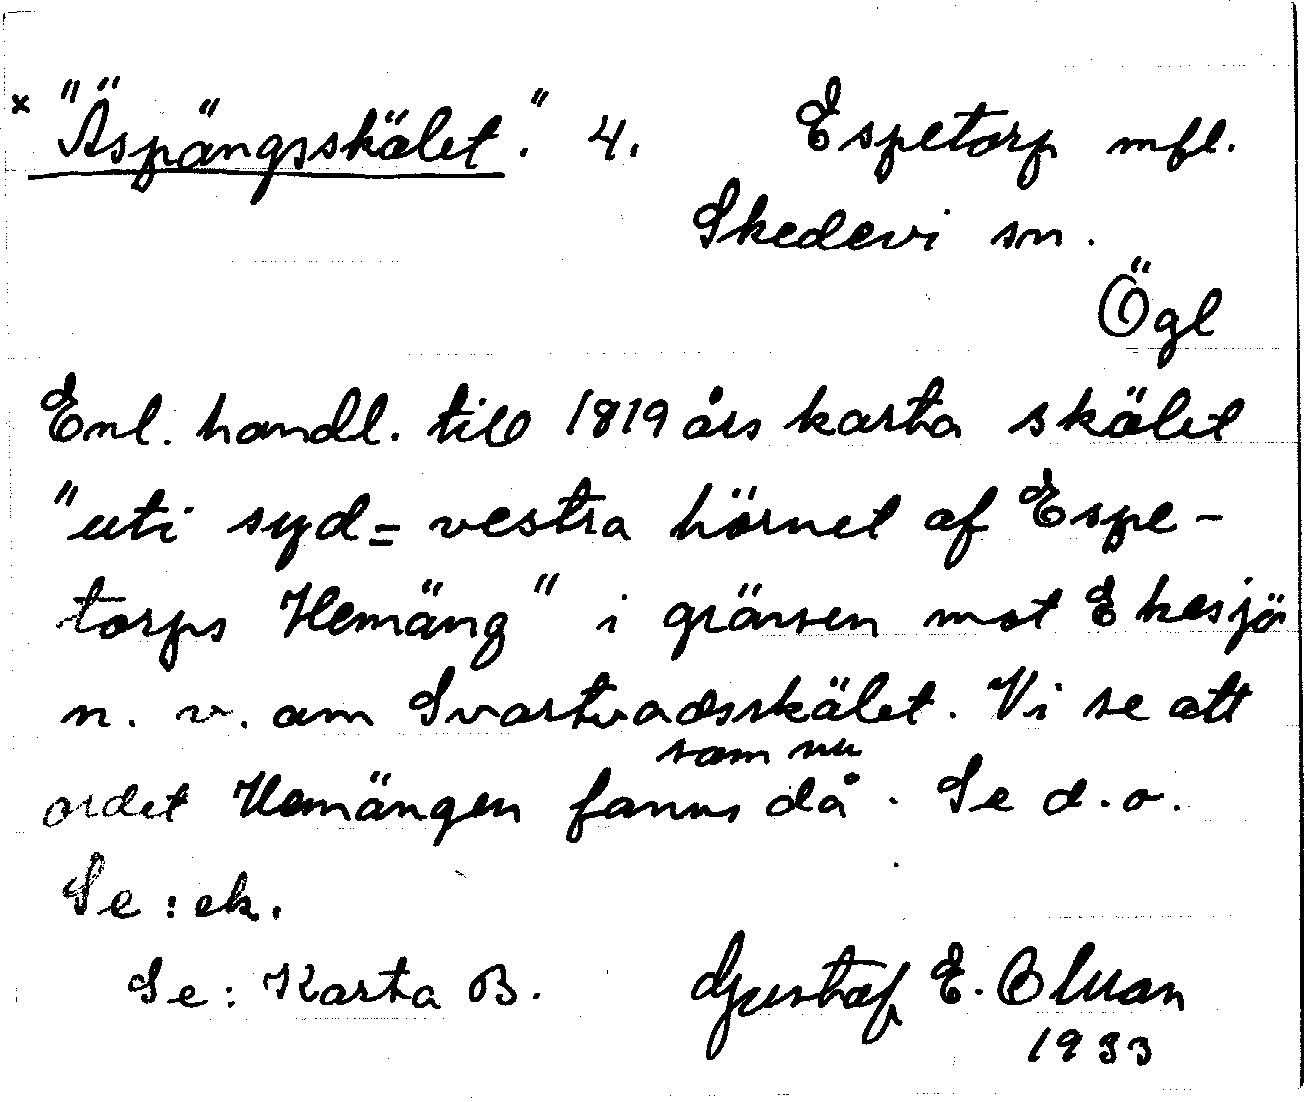 × "Äspängsskälet." 4. Espetorp mfl.
Skedevi sn.
Ögl
Enl. handl. till 1819 års karta skälet
"uti syd= vestra hörnet af Espe-
torps Hemäng" i gränsen mot Ekesjö
n. v. om Svartvadsskälet. Vi se att
som nu
ordet Hemängen fanns då. Se d. o.
Se : ek.
Se : Karta B. Gustaf E.
1933